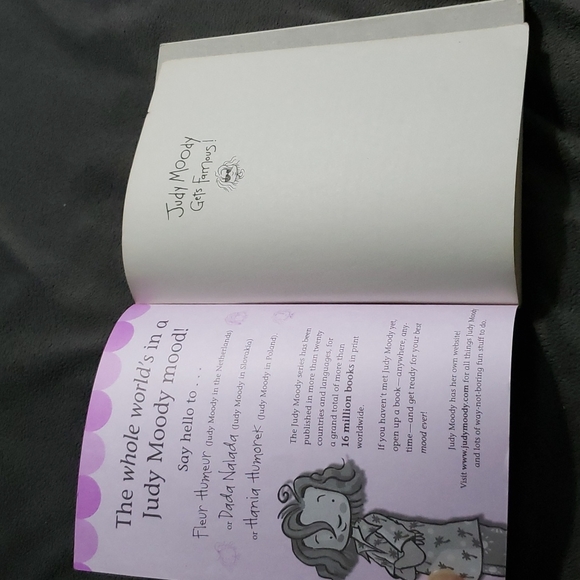 The whole world's in a
Judy Moody mood!
Say hello to . . .
Fleur Humeur (Judy Moody in the Netherlands)
or Dada Nalada (Judy Moody in Slovakia)
or Hania Humorek (Judy Moody in Poland)
The Judy Moody series has been
published in more than twenty
countries and languages, for
a grand total of more than
16 million books in print
worldwide.
If you haven't met Judy Moody yet,
open up a book—anywhere, any-
time—and get ready for your best
mood ever!
Judy Moody has her own website!
Visit www.judymoody.com for all things Judy Moody
and lots of way-not-boring fun stuff to do.
Judy Moody
Gets Famous!